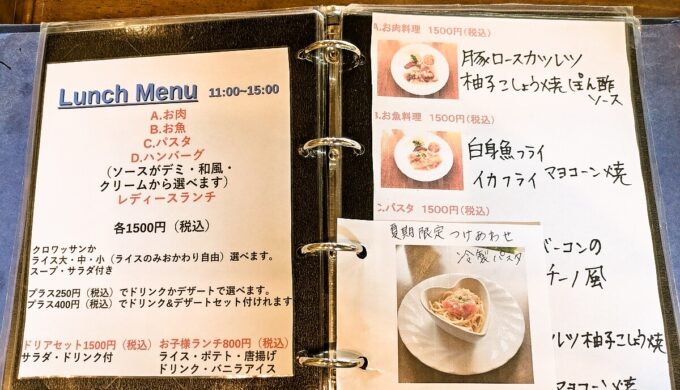 Lunch Menu 11:00~15:00
A.お肉
B.お魚
C.パスタ
D.ハンバーグ
(ソースがデミ・和風・
クリームから選べます)
レディースランチ
各1500円(税込)
クロワッサンか
ライス大・中・小(ライスのみおかわり自由)選べます。
スープ・サラダ付き
プラス250円(税込)でドリンクかデザートで選べます。
プラス400円(税込)でドリンク&デザートセット付けれます
ドリアセット1500円(税込)
サラダ・ドリンク付
お子様ランチ800円(税込)
ライス・ポテト・唐揚げ
ドリンク・バニラアイス
A.お肉料理 1500円(税込)
豚ロースカツレツ
柚子こしょう焼 ぽん酢
ソース
B.お魚料理 1500円(税込)
白身魚フライ
イカフライ マヨコーン焼
C.パスタ 1500円(税込)
夏期限定つけあわせ
冷製パスタ
ベーコンの
チーノ風
レツ 柚子こしょう焼
マヨコーン焼